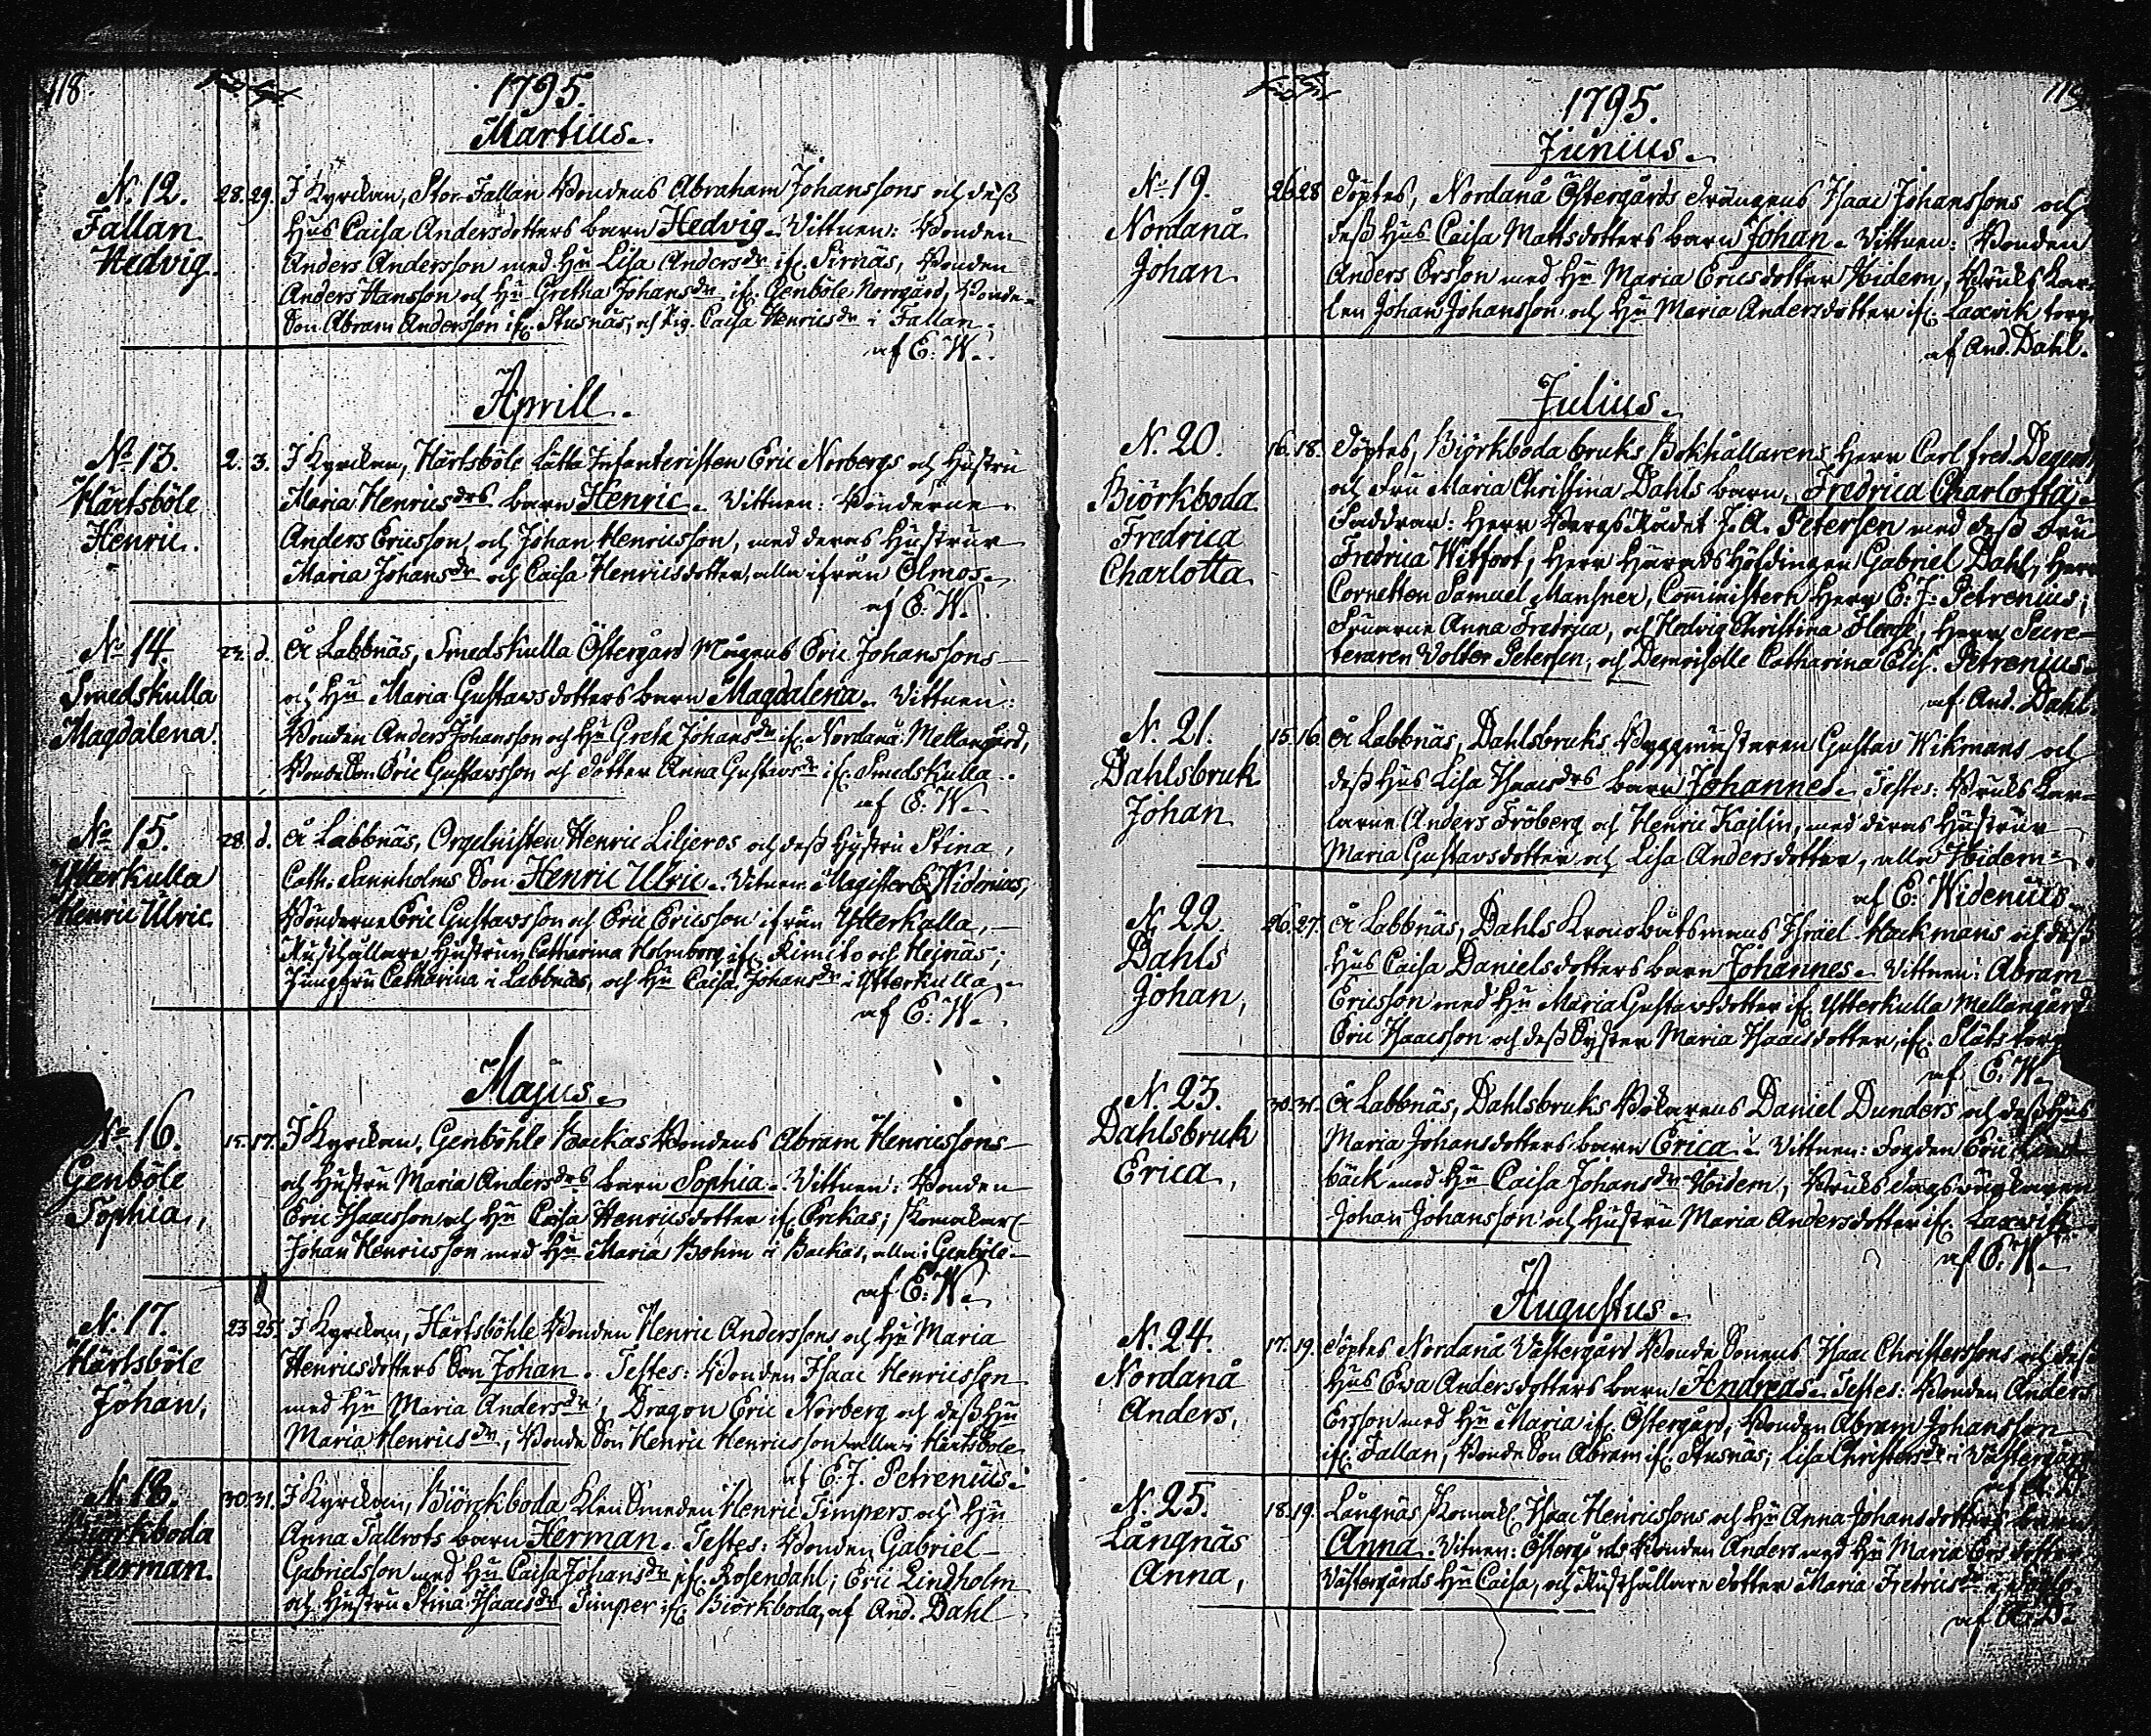 118.
1795.
Martius.
N. 12.
Fallan
Hedvig.
28. 29. I Kyrckan, Stor-Fallan Bondens Abraham Johanssons och dess
Hus Caisa Andersdotters barn Hedvig. Vittnen: Bonden
Anders Andersson med Hu Lisa Andersdr if. Sirnäs, Bonden
Anders Hansson och Hu Gretha Johansdr if. Genböle Norrgård, Bonde-
Son Abram Andersson if. Stusnäs, och Pig. Caisa Henricsdr i Fallan.
af E: W.
Aprill.
No 13.
Härtsböle
Henric.
2. 3. I Kyrckan, Härtsböle Lätta Infanteristen Eric Norbergs och Hustru
Maria Henricsdrs barn Henric. Vittnen: Bönderne
Anders Ericsson, och Johan Henricsson, med deras Hustrur
Maria Johansdr och Caisa Henricsdotter, alla ifrån Ölmos.
af E: W.
No 14.
Smedskulla
Magdalena.
22. d. Å Labbnäs, Smedskulla Östergård Mågens Eric Johanssons
och Hu Maria Gustavsdotters barn Magdalena. Vittnen:
Bonden Anders Johansson och Hu Greta Johansdr if. Nordanå Mellangård,
BondeSon Eric Gustavsson och dotter Anna Gustavsdr if. Smedskulla.
af E: W.
No 15.
Ytterkulla
Henric Ulric.
28. d. Å Labbnäs, Orgelnisten Henric Liljeros och dess Hustru Stina
Cath: Sannholms Son Henric Ulric. Vitnen Magister E Widenius,
Bönderne Eric Gustavsson och Eric Ericsson ifrån Ytterkulla,
Rusthållare Hustrun Catharina Holmberg if. Kimito och Hejnäs;
Jungfru Catharina i Labbnäs, och Hu Caisa Johansdr i Ytterkulla.
af E: W.
Majus.
No 16.
Genböle
Sophia,
15. 17. I Kyrckan, Genböhle Backas Bondens Abram Henricssons
och Hustru Maria Andersdrs barn Sophia. Vittnen: Bonden
Eric Isaacsson och Hu Caisa Henricsdotter if. Eckas; Skomakar
Johan Henricsson med Hu Maria Bohm i Backas, alla i Genböle.
af E: W.
N. 17.
Härtsböle
Johan,
23. 25. I Kyrckan, Härtsböhle Bonden Henric Anderssons och Hu Maria
Henricsdotters Son Johan. Testes: Bonden Isaac Henricsson
med Hu Maria Andersdr, Dragon Eric Norberg och dess Hu
Maria Henricsdr, BondeSon Henric Henricsson alla i Härtsböle
af E. J. Petrenius.
N. 18.
Biörkboda
Herman.
30. 31. I Kyrckan, Biörckboda Klensmeden Henric Timpers och Hu
Anna Tallrots barn Herman. Testes: Bonden Gabriel
Gabrielsson med Hu Caisa Johansdr if. Rosendahl; Eric Lindholm
och Hustru Stina Isaacsdr Timper if. Biörkboda, af And. Dahl
119
1795.
Junius.
No 19.
Nordanå
Johan
26. 28 Döptes, Nordanå Östergårds Drängens Isaac Johanssons och
dess Hus Caisa Mattsdotters barn Johan. Vittnen: Bonden
Anders Ersson med Hu Maria Ericsdotter Ibidem, Bruks Kar-
len Johan Johansson och Hu Maria Andersdotter if. Laxvik torp
af And. Dahl.
Julius.
N. 20.
Biörkboda
Fredrica
Charlotta
16. 18. Döptes, Biörkboda bruks Bokhållarens Herr Carl Fred.
och Fru Maria Christina Dahls barn, Fredrica Charlotta.
Faddrar: Herr BergsRådet J. A. Petersen med dess Fru
Fredrica Witfoot; Herr Häradshöfdingen Gabriel Dahl, Herr
Cornetten Samuel Mansner, Comministern Herr E: J: Petrenius;
Fruarne Anna Fredrica, och Hedvig Christina Flege, Herr Secre-
teraren Volter Petersen, och Demoiselle Catharina Elis. Petrenius
af And. Dahl.
N. 21.
Dahlsbruk
Johan
15. 16. Å Labbnäs, Dahlsbruks Byggmästaren Gustav Wikmans och
dess Hus Lisa Isaacsdrs barn Johannes. Testes: Bruks Kar-
larne Anders Fröberg och Henric Kajlin, med deras Hustrur
Maria Gustavsdotter och Lisa Andersdotter, alla Ibidem.
af E: Widenius.
N. 22.
Dahls
Johan,
26. 27. Å Labbnäs, Dahls Kronobåtsmans Israel Hackmans och dess
Hus Caisa Danielsdotters barn Johannes. Vittnen: Abram
Ericsson med Hu Maria Gustavsdotter if. Ytterkulla Mellangård
Eric Isaacsson och dess Syster Maria Isaacsdotter, if. Släts torp
af E: W.
N. 23.
Dahlsbruk
Erica,
30. 31. Å Labbnäs, Dahlsbruks Bokarens Daniel Dunders och dess Hus
Maria Johansdotters barn Erica. Vittnen: Fogden Eric Lind-
bäck med Hu Caisa Johansdr Ibidem; Bruks dagsverkaren
Johan Johansson och Hustru Maria Andersdotter if. Laxwik
af E: W.
Augustus.
N. 24.
Nordanå
Anders,
17. 19. Döptes Nordanå Västergård Bonde Sonens Isaac Christerssons och dess
Hus Ewa Andersdotters barn Andreas. Testes: Bonden Anders
Ersson med Hu Maria if. Östergård; Bonden Abram Johansson
if. Fallan, BondeSon Abram if. Stusnäs; Lisa Christersdr i Västergård
af A. D.
N. 25.
Långnäs
Anna,
18. 19. Långnäs Skomak. Isaac Henricssons och Hu Anna Johansdotters barn
Anna. Vitnen: Östergårds Bonden Anders med Hu Maria Ersdotter
Västergårds Hu Caisa, och Rusthållare dotter Maria Fredricsdr i
af A. D.